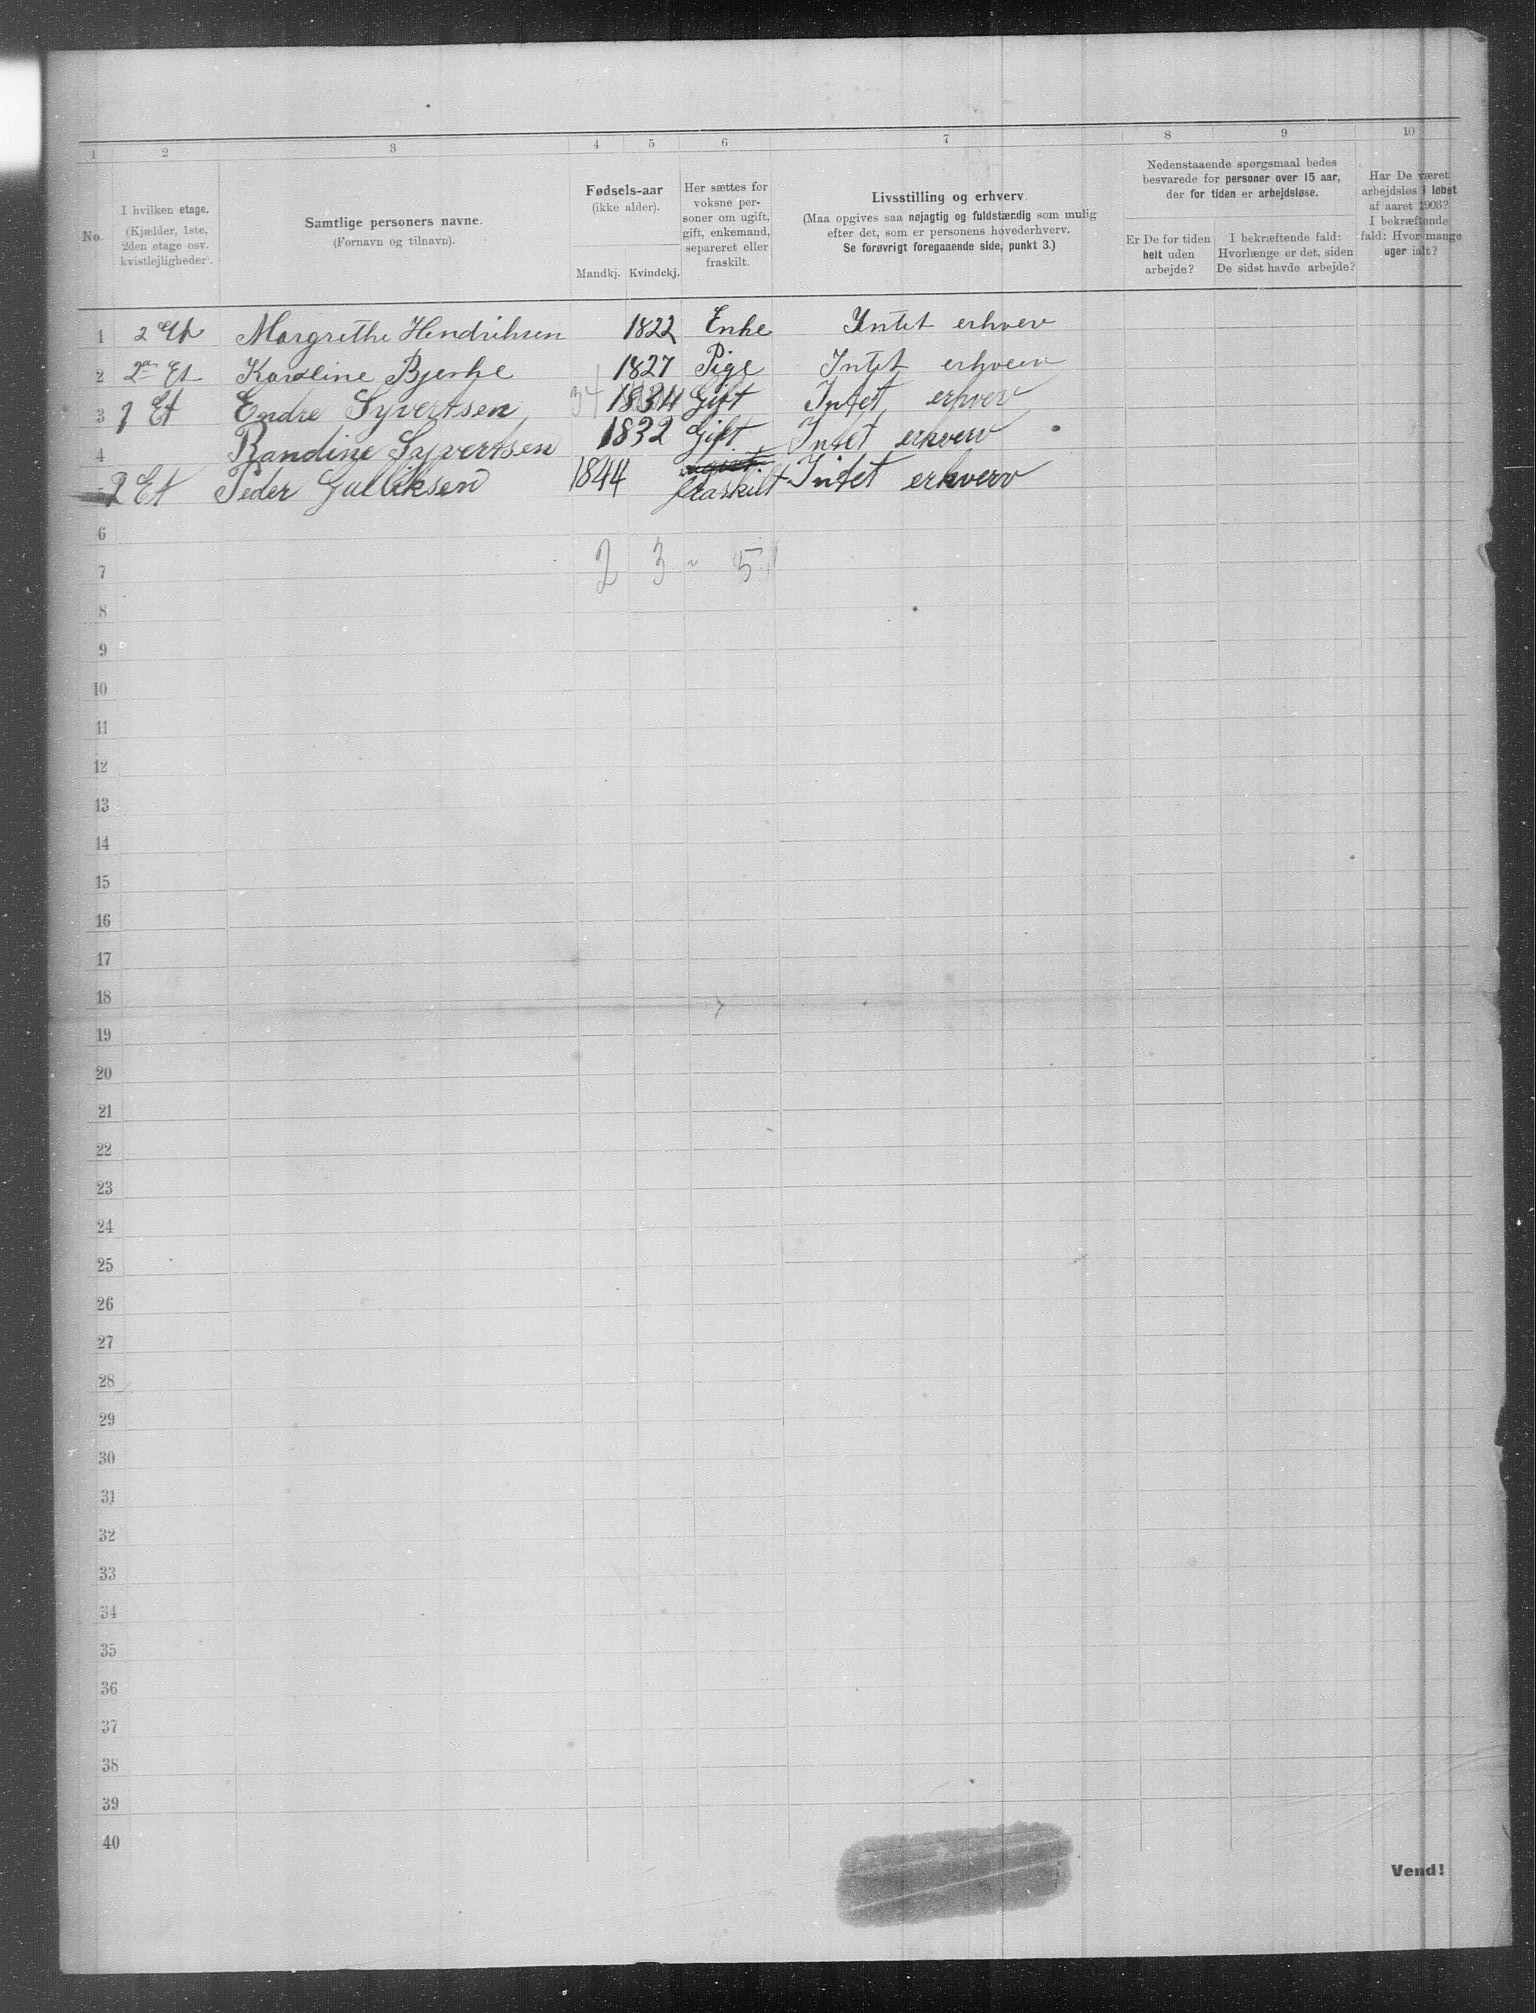 1 2 3 4 5 6 7 8 9 10
No.
I hvilken etage.
(Kjælder, 1ste,
2den etage osv.
kvistlejligheder).
Samtlige personers navne.
(Fornavn og tilnavn).
Fødsels-aar
(ikke alder).
Mandkj. Kvindekj.
Her sættes for
voksne per-
soner om ugift,
gift, enkemand,
separeret eller
fraskilt.
Livsstilling og erhverv
(Maa opgives saa nøjagtig og fuldstændig som mulig
efter det, som er personens hovederhverv.
Se forøvrigt foregaaende side, punkt 3.)
Nedenstaaende spørgsmaal bedes
besvarede for personer over 15 aar,
der for tiden er arbejdsløse.
Er De for tiden
helt uden
arbejde?
I bekræftende fald:
Hvorlænge er det, siden
De sidst havde arbejde?
Har De været
arbejdsløs i løbet
af aaret 1903?
I bekræftende
fald: Hvor mange
uger ialt?
1 2 Et Margrethe Hendriksen 1822 Enke Intet erhverv
2 2den Et Karoline Bjerke 1827 Pige Intet erhverv
3 1 Et Endre Syvertsen 34 1834 Gift Intet erhverv
4 Randine Syvertsen 1832 Gift Intet erhverv
5 2 Et Peder Gulliksen 1844 ugift fraskilt Intet erkverv
6
7 2 3 " 5
8
9
10
11
12
13
14
15
16
17
18
19
20
21
22
23
24
25
26
27
28
29
30
31
32
33
34
35
36
37
38
39
40
Vend!